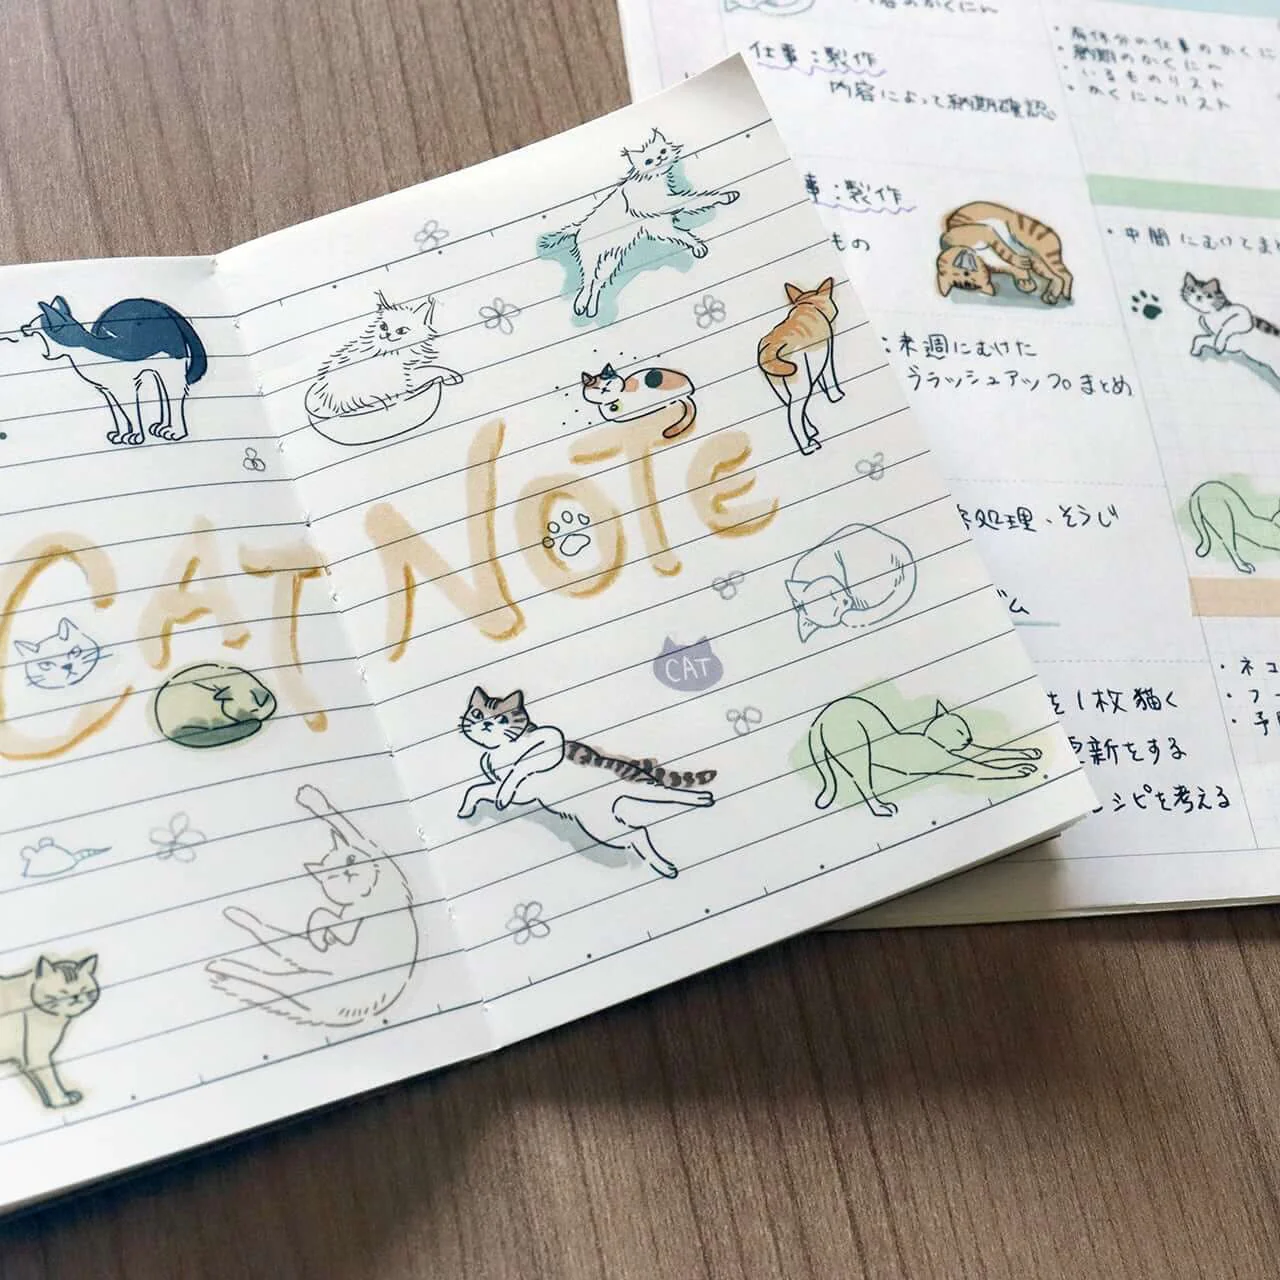 CAT NOTE
CAT
仕事:製作
内容によって納期確認。
事:製作
もの
:来週にむけた
ブラッシュアップまとめ
処理・そうじ
ム
を1枚描く
更新をする
レシピを考える
のかくにん
・身体分の仕事のかくに
・納期のかくにん
・いるものリスト
・かくにんリスト
・中間にむけてま
・ネコ
・フ
・予